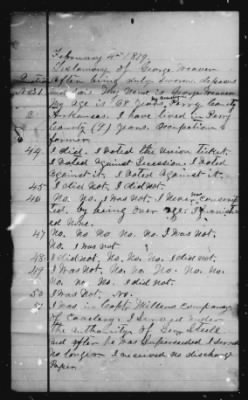 February 4th 1879
Testimony of George Weaver
after being duly sworn deposes
No 31. and says My Name is George Weaver
My age is 68 Years Perry County
Arkansas. I have lived in Perry
County (7) Years. Occupation
farmer
44 I did. I voted the Union Ticket.
I voted against Secession. I voted
against it. I voted against it.
45 I did not, I did not.
46 No. No. I was not. I never was
ed. by being over age. I
ed None.
47 No. No. No. No. I was Not.
No. I was not.
48 I did not. No. No. No. I did not.
49 I was Not. No. No. No. No. No.
No. No. No. I did not.
50 I was Not. No.
I was in Capt. Company
of Cavalry. I served under
the authority of Gen Steele
and after he was superseded I served
no longer I received no discharge
Paper.